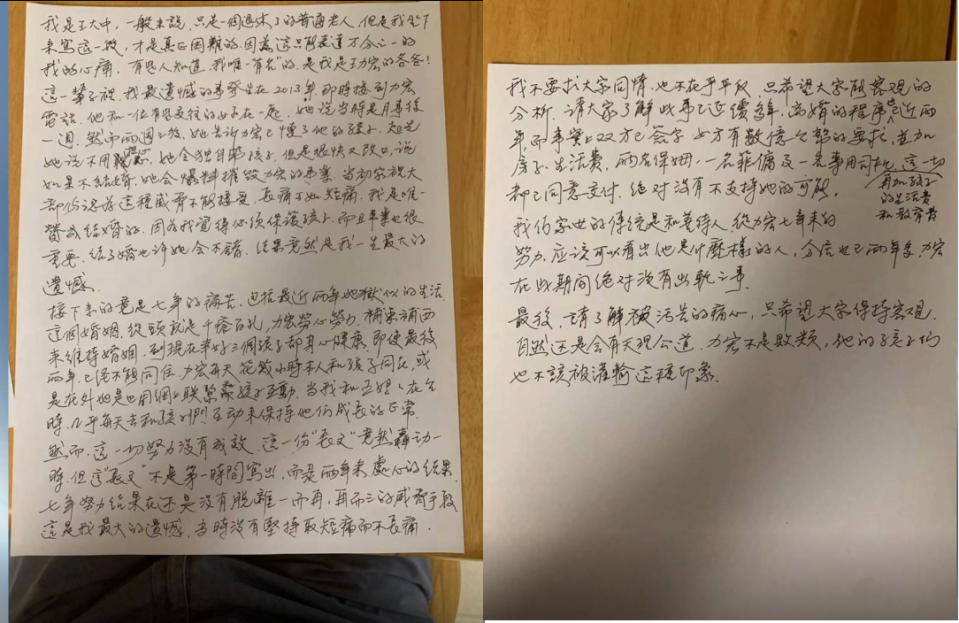 我是王大中,一般来說,只是一個退休了的普通老人,但是我坐下
来寫這一段,才是真正困難的,因為這只能表達万分之一的
我的心痛,有些人知道,我唯一有名"的,是我是王力宏的爸爸!
這一輩子裡,我最遺憾的事發生在2013年,那時接到力宏
電話,他和一位有恩交往的女子在一起,她說当時是月事後
一週,然而兩週之後,她告訴力宏已懷了他的孩子,起先
她說不用担心,她会独自養孩子,但是很快又改口,說
如果不結婚,她会爆料摧毁力宏的事業,当初家裡大
部份認為這種威脅不能接受,長痛不如短痛,我是唯一
替成結婚的,因為我覺得必須保護孩子,而且事業也很
重要,結了婚也许她会不錯,結果竟然是我一生最大的
遺憾.
接下来的竟是七年的痛苦,包括最近兩年地獄似的生活
這個婚姻,從頭就是千瘡百孔,力宏劳心努力,補東補西
来維持婚姻,到現在幸好三個孩子都身心健康,即使最後
兩年,已經不能同住,力宏每天花幾小時本人和孩子同在,或
是在外地是也用網上联繫跟孩子互動,当我和王媽媽在台
時,几乎每天去和孩子們互动来保持他们成長的正常.
然而,這一切努力沒有成效,這一份"長文"竟然轟动一
時,但這"長文"不是第一時間寫出,而是兩年来處心的結果
七年努力結果在还是沒有脱離一而再,再而三的威脅手段
這是我最大的遺憾,当時沒有堅持取短痛而不長痛.
我不要扒大家同情,也不在乎手段,只希望大家能客观的
分析,請大家了解此事已延續多年,离婚的程序也已近兩
年,而事實上双方已簽字,女方有數億台幣的要求,並加
房子,生活費,兩名保姆,一名菲傭及一名專用司机,這一切
再加孩子
的生活費
和教育費
都已同意交付,絕对沒有不支持她的可能.
我们家世的傳統是和善待人,從力宏七年来的
努力,应該可以看出他是什麽樣的人,分居也已兩年多,力宏
在此期間絕对沒有出軌之事.
最後,請了解被污告的痛心,只希望大家保持客观,
自然还是会有天理公道,力宏不是敗類,他的孩子们
也不該被灌輸這種印象.